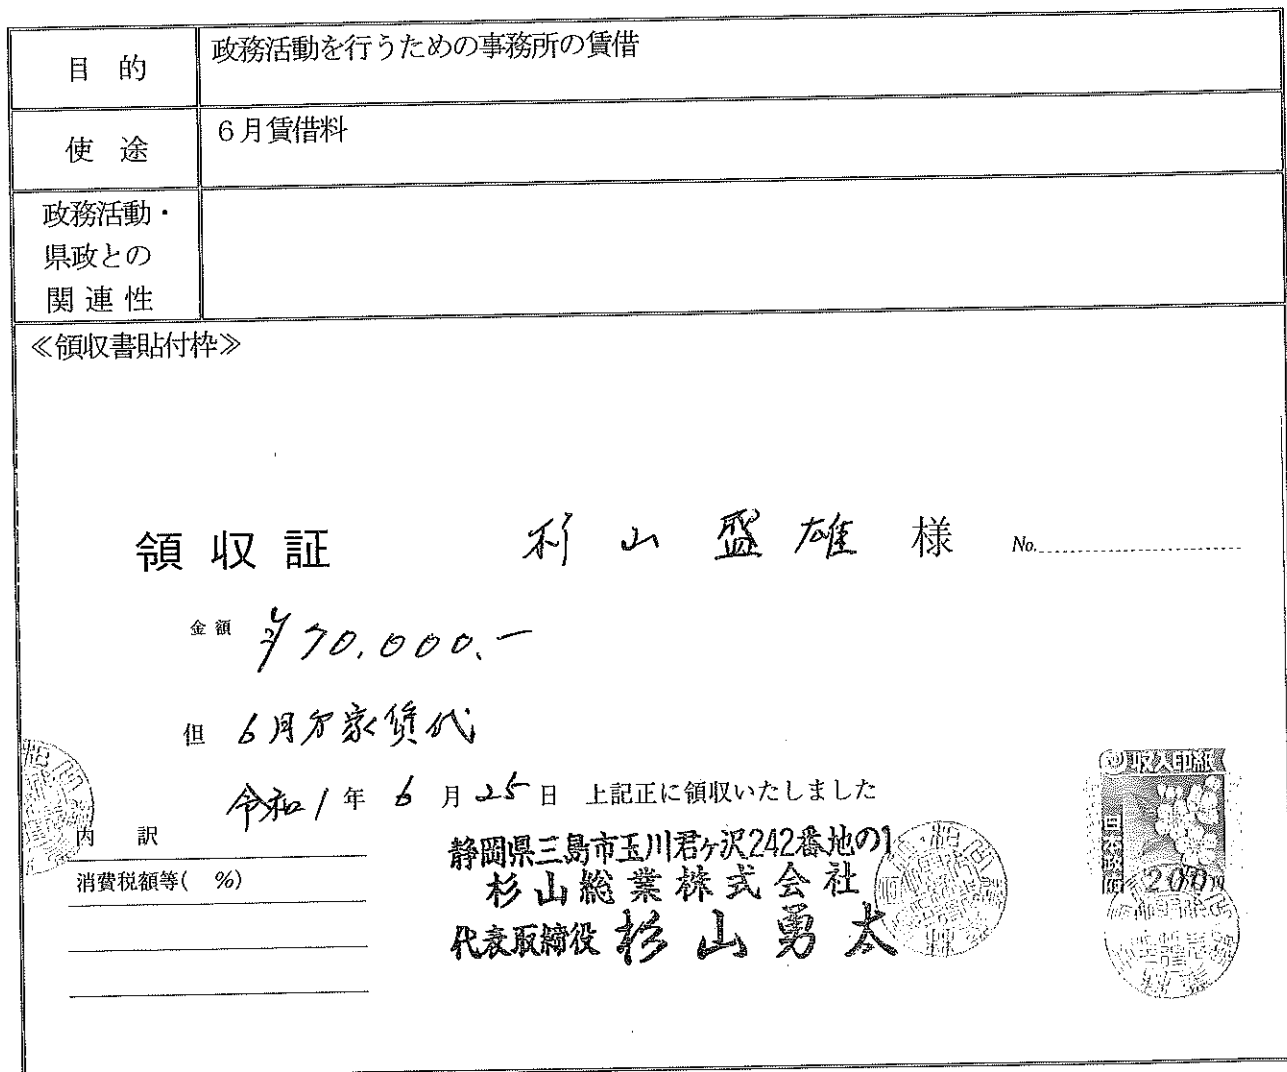 目 的
政務活動を行うための事務所の賃借
使 途
6月賃借料
政務活動・
県政との
関 連 性
≪領収書貼付枠≫
領 収 証
杉 山 盛 雄 様
No.
金 額 ¥70,000.-
但 6月分家賃代
令和1年 6月25日 上記正に領収いたしました
内 訳
消費税額等( %)
静岡県三島市玉川君ヶ沢242番地の1
杉山総業株式会社
代表取締役 杉山勇太
収入印紙
日本政府
200円